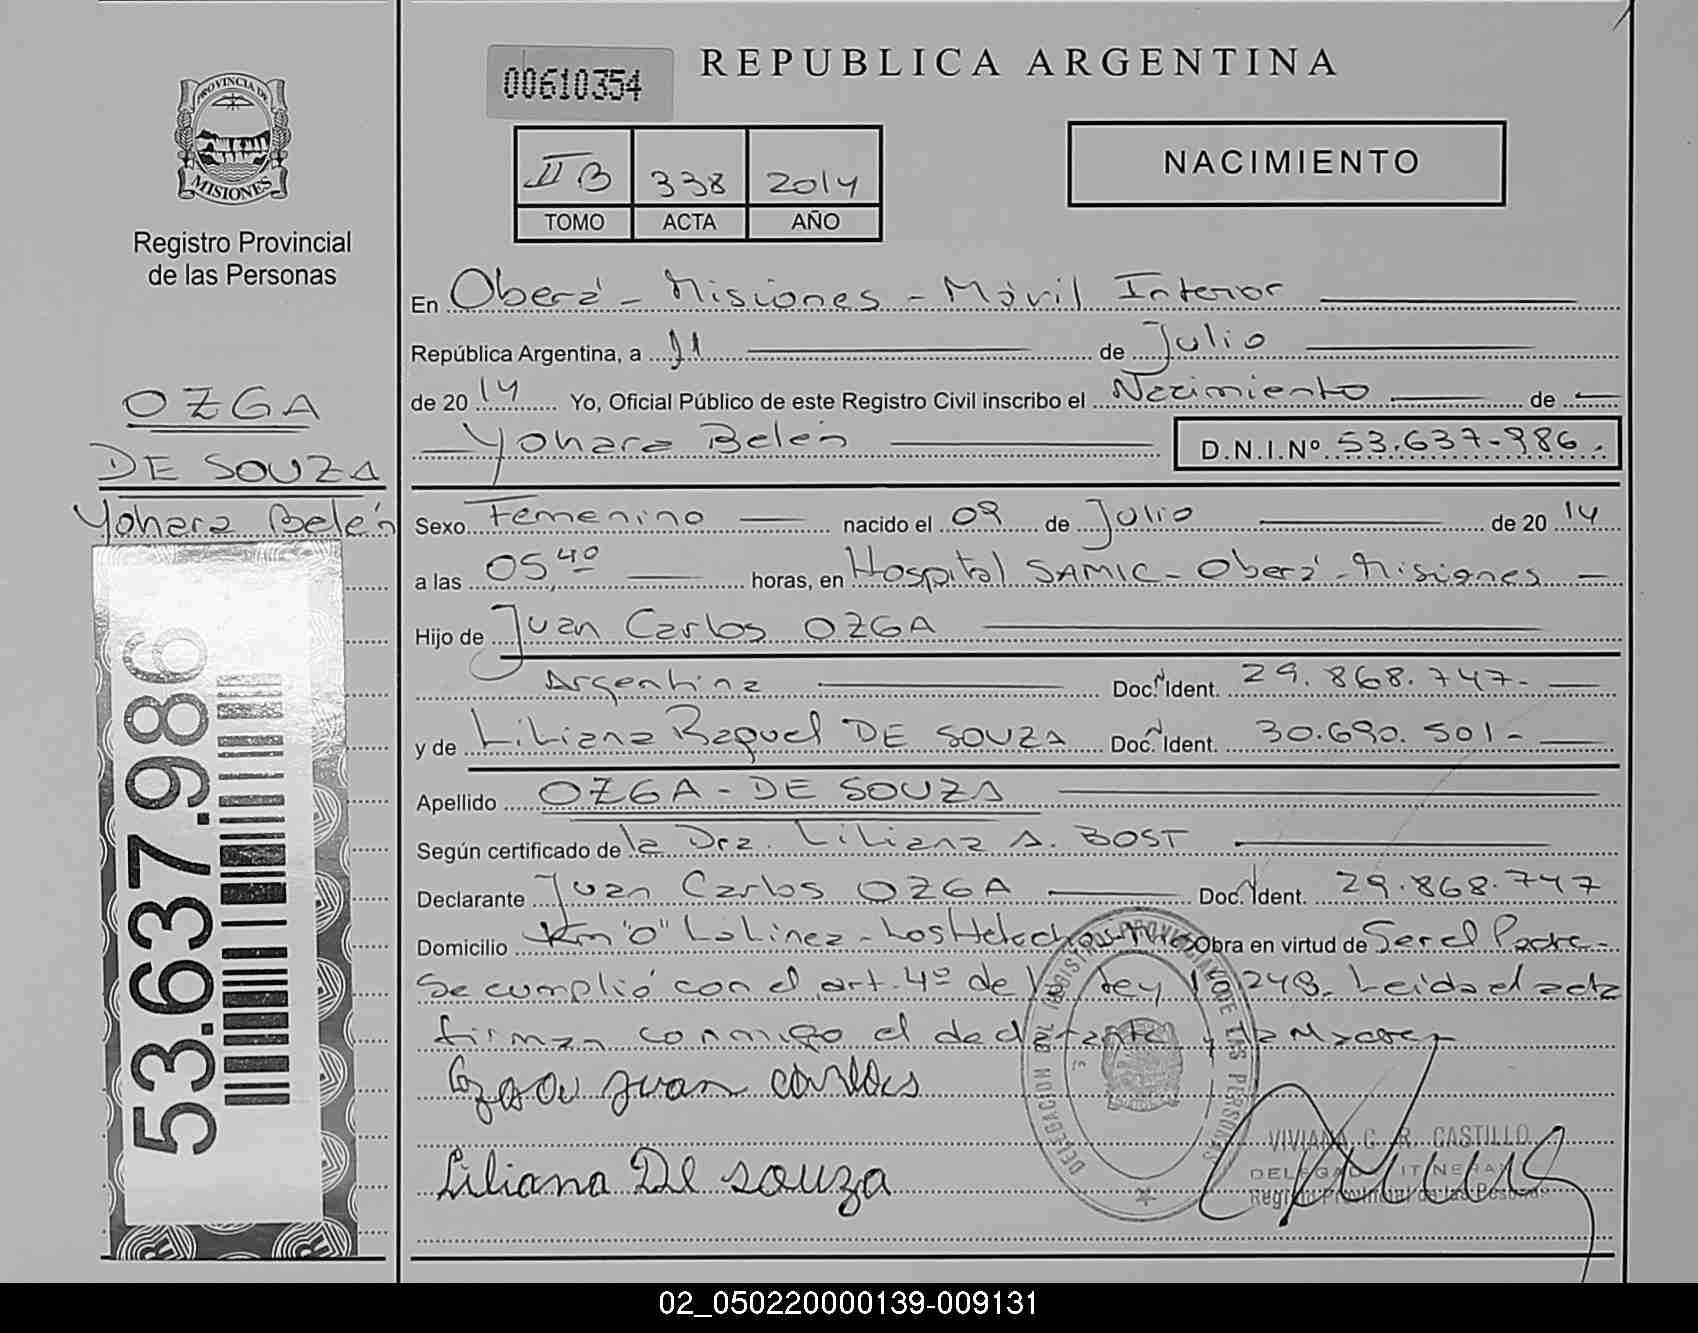 00610354
REPUBLICA ARGENTINA
PROVINCIA DE
MISIONES
Registro Provincial
de las Personas
II B 338 2014
TOMO ACTA AÑO
NACIMIENTO
OZGA
DE SOUZA
Yohara Belén
53.637.986
En Oberá - Misiones - Móvil Interior
República Argentina, a 11 de Julio
de 20 14 Yo, Oficial Público de este Registro Civil inscribo el Nacimiento de
Yohara Belén D.N.I.Nº 53.637.986.
Sexo Femenino nacido el 09 de Julio de 20 14
a las 05,40 horas, en Hospital SAMIC - Oberá - Misiones
Hijo de Juan Carlos OZGA
Argentina Doc. N Ident. 29.868.747-
y de Liliana Raquel DE SOUZA Doc. N Ident. 30.690.501-
Apellido OZGA - DE SOUZA
Según certificado de la Dra. Liliana A. BOST
Declarante Juan Carlos OZGA Doc. N Ident. 29.868.747
Domicilio Km "0" La Linea - Los Helechos - Mnes Obra en virtud de Ser el Padre-
Se cumplió con el art. 4º de la Ley 248. Leida el acta
firman conmigo el declarante y la Madre
Ozga Juan Carlos
Liliana De Souza
DELEGACION DEL REGISTRO PROVINCIAL DE LAS PERSONAS
VIVIANA G. R. CASTILLO
DELEGADA ITINERANTE
Registro Provincial de las Personas
02_050220000139-009131